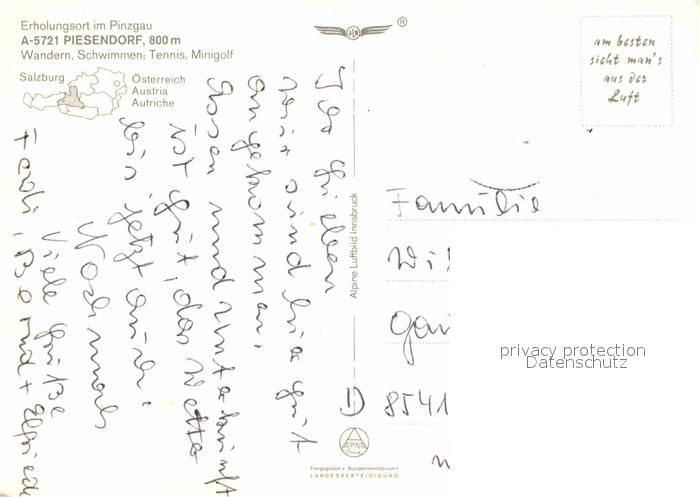 Erholungsort im Pinzgau
A-5721 PIESENDORF, 800 m
Wandern, Schwimmen; Tennis, Minigolf
Salzburg
Österreich
Austria
Autriche
®
am besten
sieht man's
aus der
Luft
Ihr Lieben
wir sind hie gut
angekommen.
Essen und Unterkunft
ist gut, das Wetter
bis jetzt auch.
Nochmals
Viele Grüße
Ferdi, Bernd + Elfriede
Alpine Luftbild Innsbruck
Familie
Wi
Gar
D 8541
privacy protection
Datenschutz
ALPINE
Freigegeben v. Bundesministerium f.
LANDESVERTEIDIGUNG